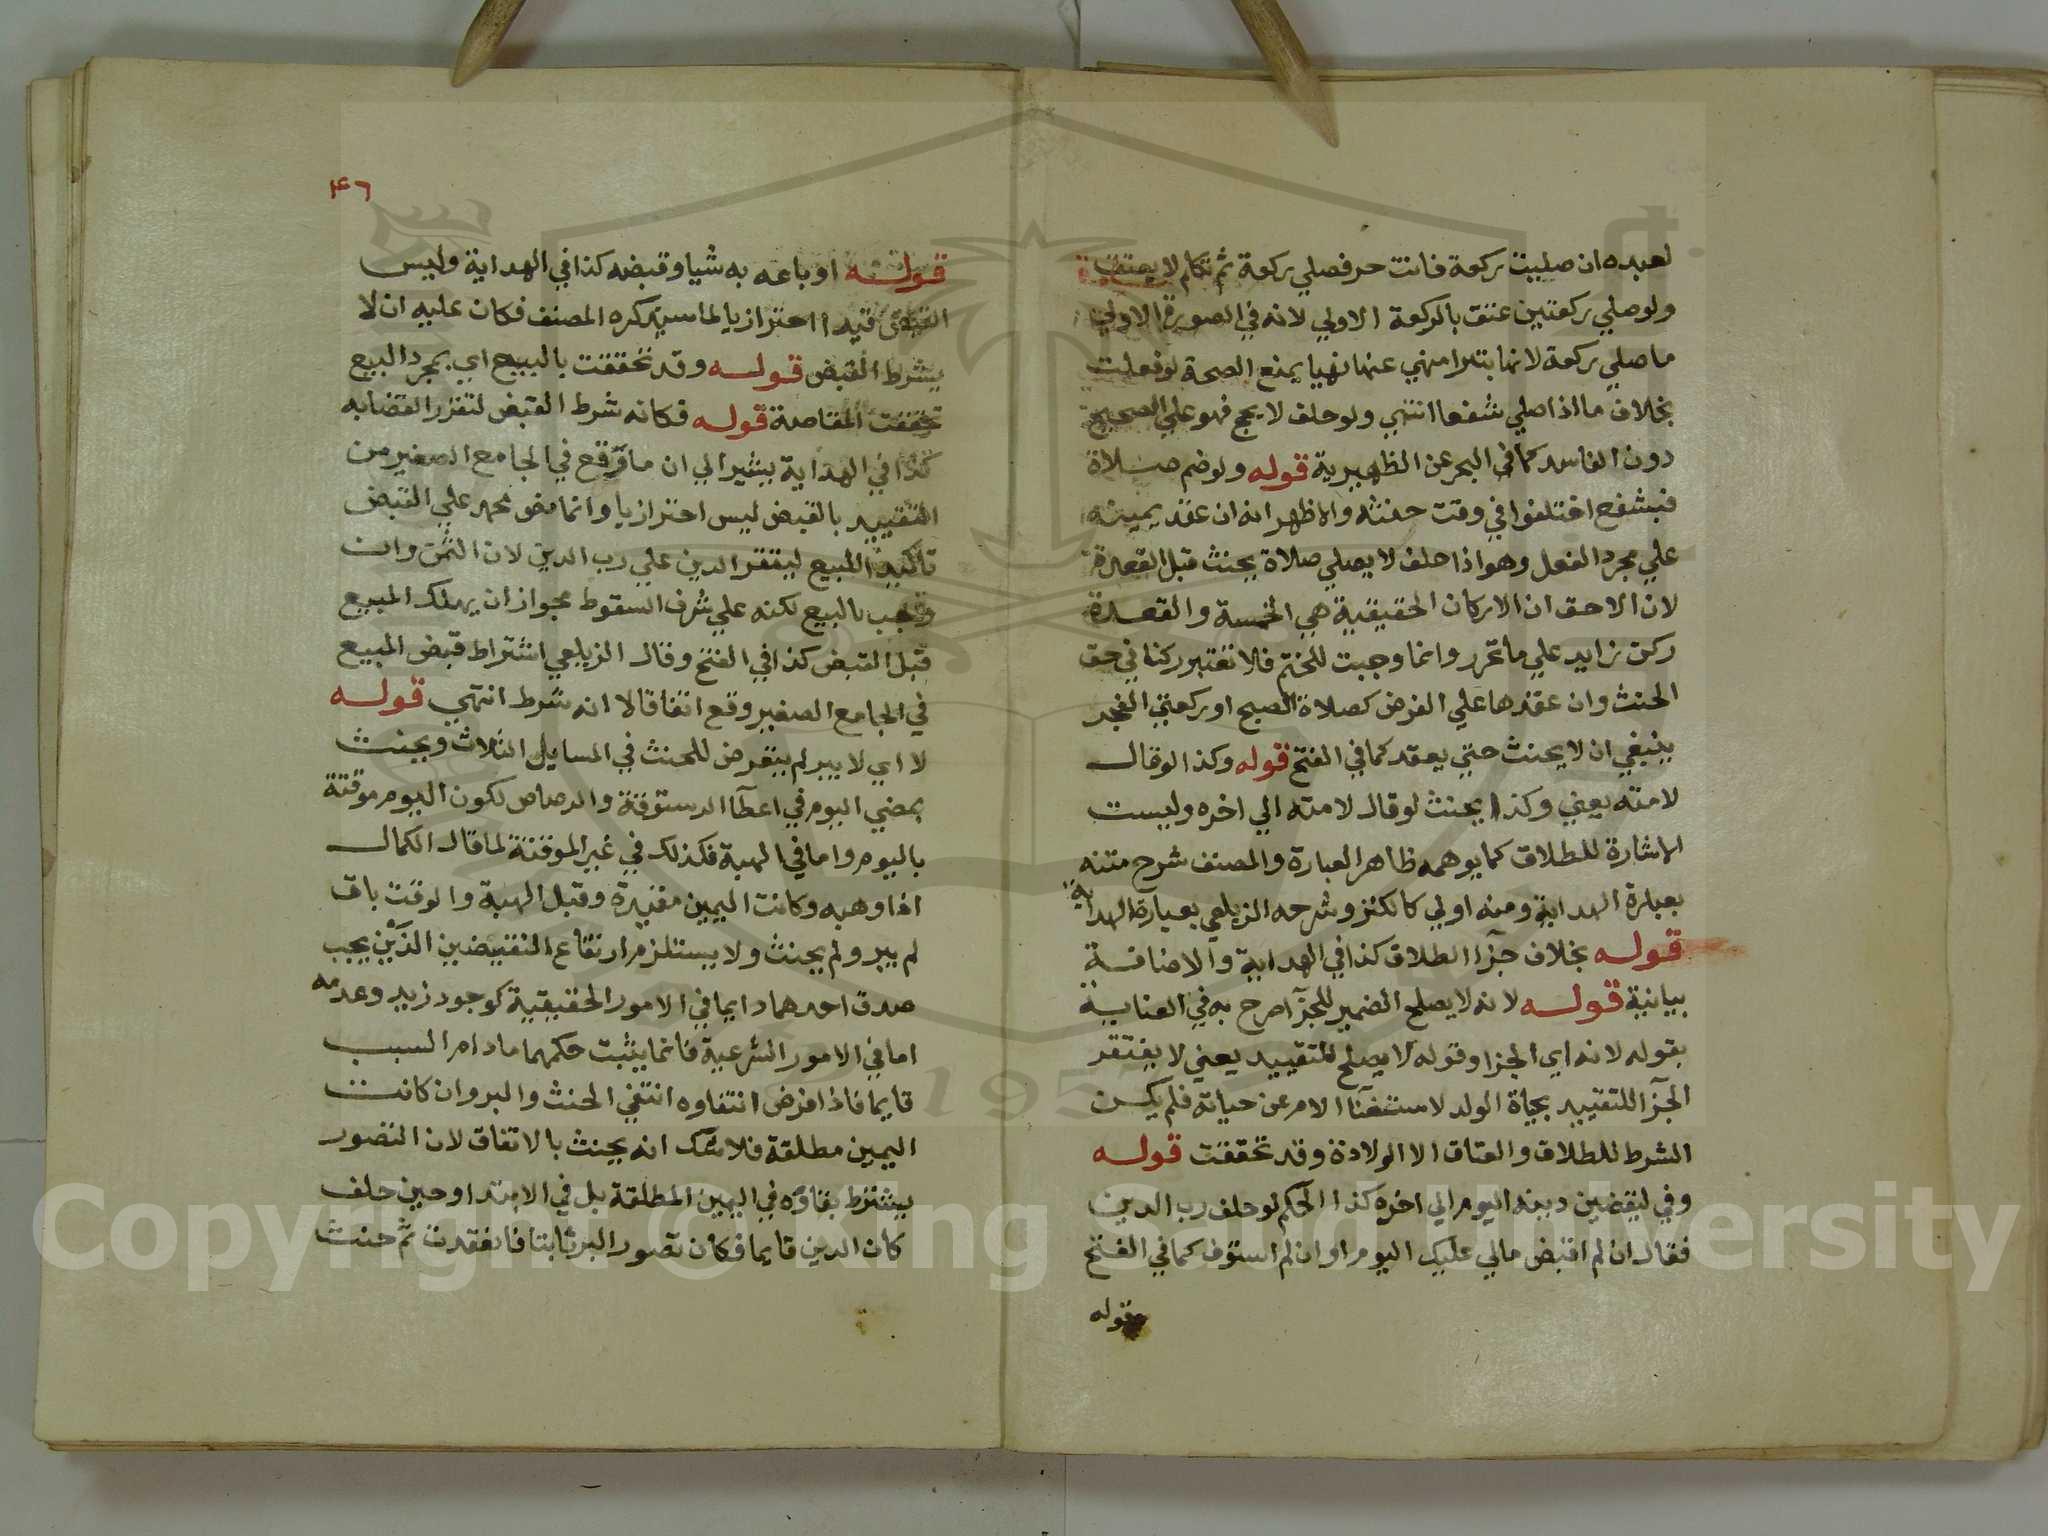 لعبده ان صليت ركعة فانت حر فصلي ركعة ثم تكلم لا يعتق
ولو صلي ركعتين عتق بالركعة الاولي لانه في الصورة الاولي
ما صلي ركعة لانها بترا منهي عنها نهيا يمنع الصحة لو فعلت
بخلاف ما اذا صلي شفعا انتهي ولو حلف لا يحج فهو علي الصحيح
دون الفاسد كما في البحر عن الظهيرية قوله ولو ضم صلاة
فبشفع اختلفوا في وقت حنثه والاظهر انه ان عقد يمينه
علي مجرد الفعل وهو اذا حلف لا يصلي صلاة يحنث قبل القعدة
لان الاحق ان الاركان الحقيقية هي الخمسة والقعدة
ركن زايد علي ما تحرر وانما وجبت للختم فلا تعتبر ركنا في حق
الحنث وان عقدها علي الفرض كصلاة الصبح او ركعتي الفجر
ينبغي ان لا يحنث حتي يعقد كما في الفتح قوله وكذا لو قال
لامته يعني وكذا يحنث لو قال لامته الي اخره وليست
الاشارة للطلاق كما يوهمه ظاهر العبارة والمصنف شرح متنه
بعبارة الهداية ومنه اولي كالكنز وشرحه الزيلعي بعبارة الهداية
قوله بخلاف جزا الطلاق كذا في الهداية والاضافة
بيانية قوله لانه لا يصلح الضمير للجزآ صرح به في العناية
بقوله لانه اي الجزا وقوله لا يصلح للتقييد يعني لا يفتقر
الجزآ للتقييد بحياة الولد لاستغنآ الام عن حياته فلم يكن
الشرط للطلاق والعتاق الا الولادة وقد تحققت قوله
وفي ليقضين دينه اليوم الي اخره كذا الحكم لو حلف رب الدين
فقال ان لم اقبض مالي عليك اليوم او ان لم استوف كما في الفتح
قوله
٤٦
قوله او باعه به شيا وقبضه كذا في الهداية وليس
قيدا احترازيا لما سيذكره المصنف فكان عليه ان لا
يشرط القبض قوله وقد تحققت بالبيع اي بمجرد البيع
تحققت المقاصة قوله فكانه شرط القبض لتقرر القضا به
كذا في الهداية يشير الي ان ما وقع في الجامع الصغير من
التقييد بالقبض ليس احترازيا وانما نص محمد علي القبض
تاكيد المبيع ليتقرر الدين علي رب الدين لان الثمن وان
وجب بالبيع لكنه علي شرف السقوط لجواز ان يهلك المبيع
قبل القبض كذا في الفتح وقال الزيلعي اشتراط قبض المبيع
في الجامع الصغير وقع اتفاقا لا انه شرط انتهي قوله
لا اي لا يبر لم يتعرض للحنث في المسايل الثلاث ويحنث
بمضي اليوم في اعطآ الستوقة والرصاص لكون اليوم موقتة
باليوم واما في الهبة فكذلك في غير الموقتة لما قال الكمال
اذا وهبه وكانت اليمين مقيدة وقبل الهبة والوقت باق
لم يبر ولم يحنث ولا يستلزم ارتفاع النقيضين الذين يجب
صدق احدهما دايما في الامور الحقيقية كوجود زيد وعدمه
اما في الامور الشرعية فانما يثبت حكمهما مادام السبب
قايما فاذا فرض انتفاوه انتفي الحنث والبر وان كانت
اليمين مطلقة فلا شك انه يحنث بالاتفاق لان التصور
يشترط بقاؤه في اليمين المطلقة بل في الابتدا وحين حلف
كان الدين قايما فكان تصور البر ثابتا فانعقدت ثم حنث
Copyright © King Saud University
1957